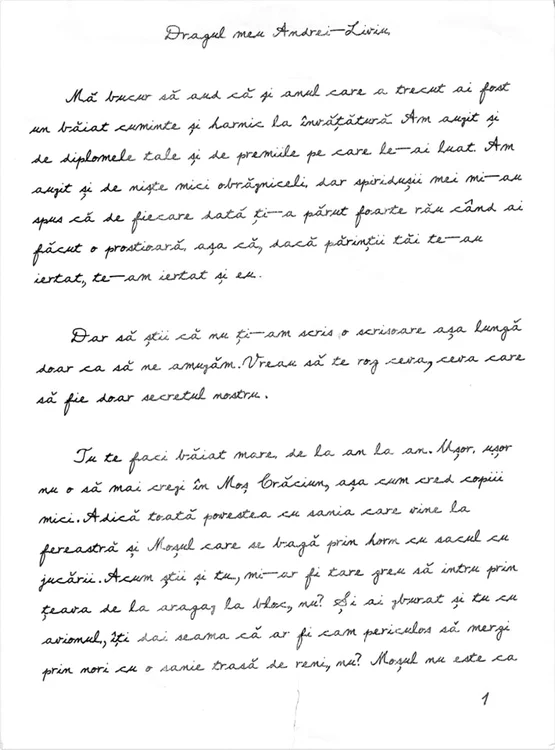 Dragul meu Andrei-Liviu,
Mă bucur să aud că și anul care a trecut ai fost
un băiat cuminte și harnic la învățătură. Am auzit și
de diplomele tale și de premiile pe care le-ai luat. Am
auzit și de niște mici obrăzniceli, dar spiridușii mei mi-au
spus că de fiecare dată ți-a părut foarte rău când ai
făcut o prostioară, așa că, dacă părinții tăi te-au
iertat, te-am iertat și eu.
Dar să știi că nu ți-am scris o scrisoare așa lungă
doar ca să ne amuzăm. Vreau să te rog ceva, ceva care
să fie doar secretul nostru.
Tu te faci băiat mare, de la an la an. Ușor, ușor
nu o să mai crezi în Moș Crăciun, așa cum cred copiii
mici. Adică toată povestea cu sania care vine la
fereastră și Moșul care se bagă prin horm cu sacul cu
jucării. Acum știi și tu, mi-ar fi tare greu să intru prin
țeava de la aragaz la bloc, nu? Și ai zburat și tu cu
avionul, îți dai seama că ar fi cam periculos să mergi
prin nori cu o sanie trasă de reni, nu? Moșul nu este ca
1